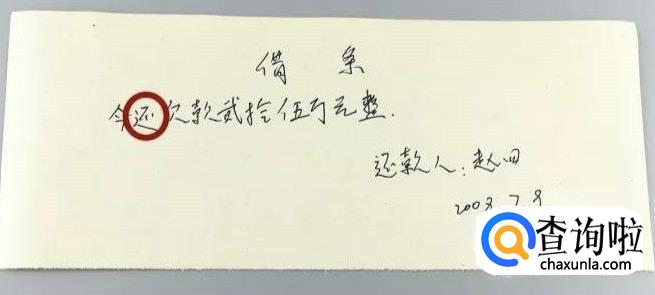 借条
今还欠款贰拾伍万元整.
还款人:赵四
2008.7.9
查询啦
chaxunla.com